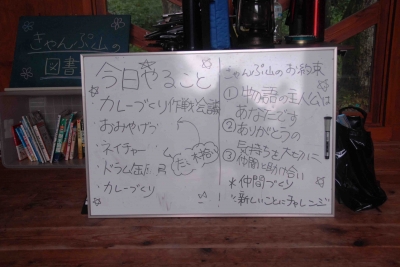 きゃんぷ山の
図書
今日やること
カレーづくり作戦会議
おみやげづ
・ネイチャー
・ドラム缶
・カレーづくり
たき木拾い
きゃんぷ山のお約束
①物語の主人公は
あなたです
②ありがとうの
気持ちを大切に
③仲間と助け合い
*仲間づくり
新しいことにチャレンジ